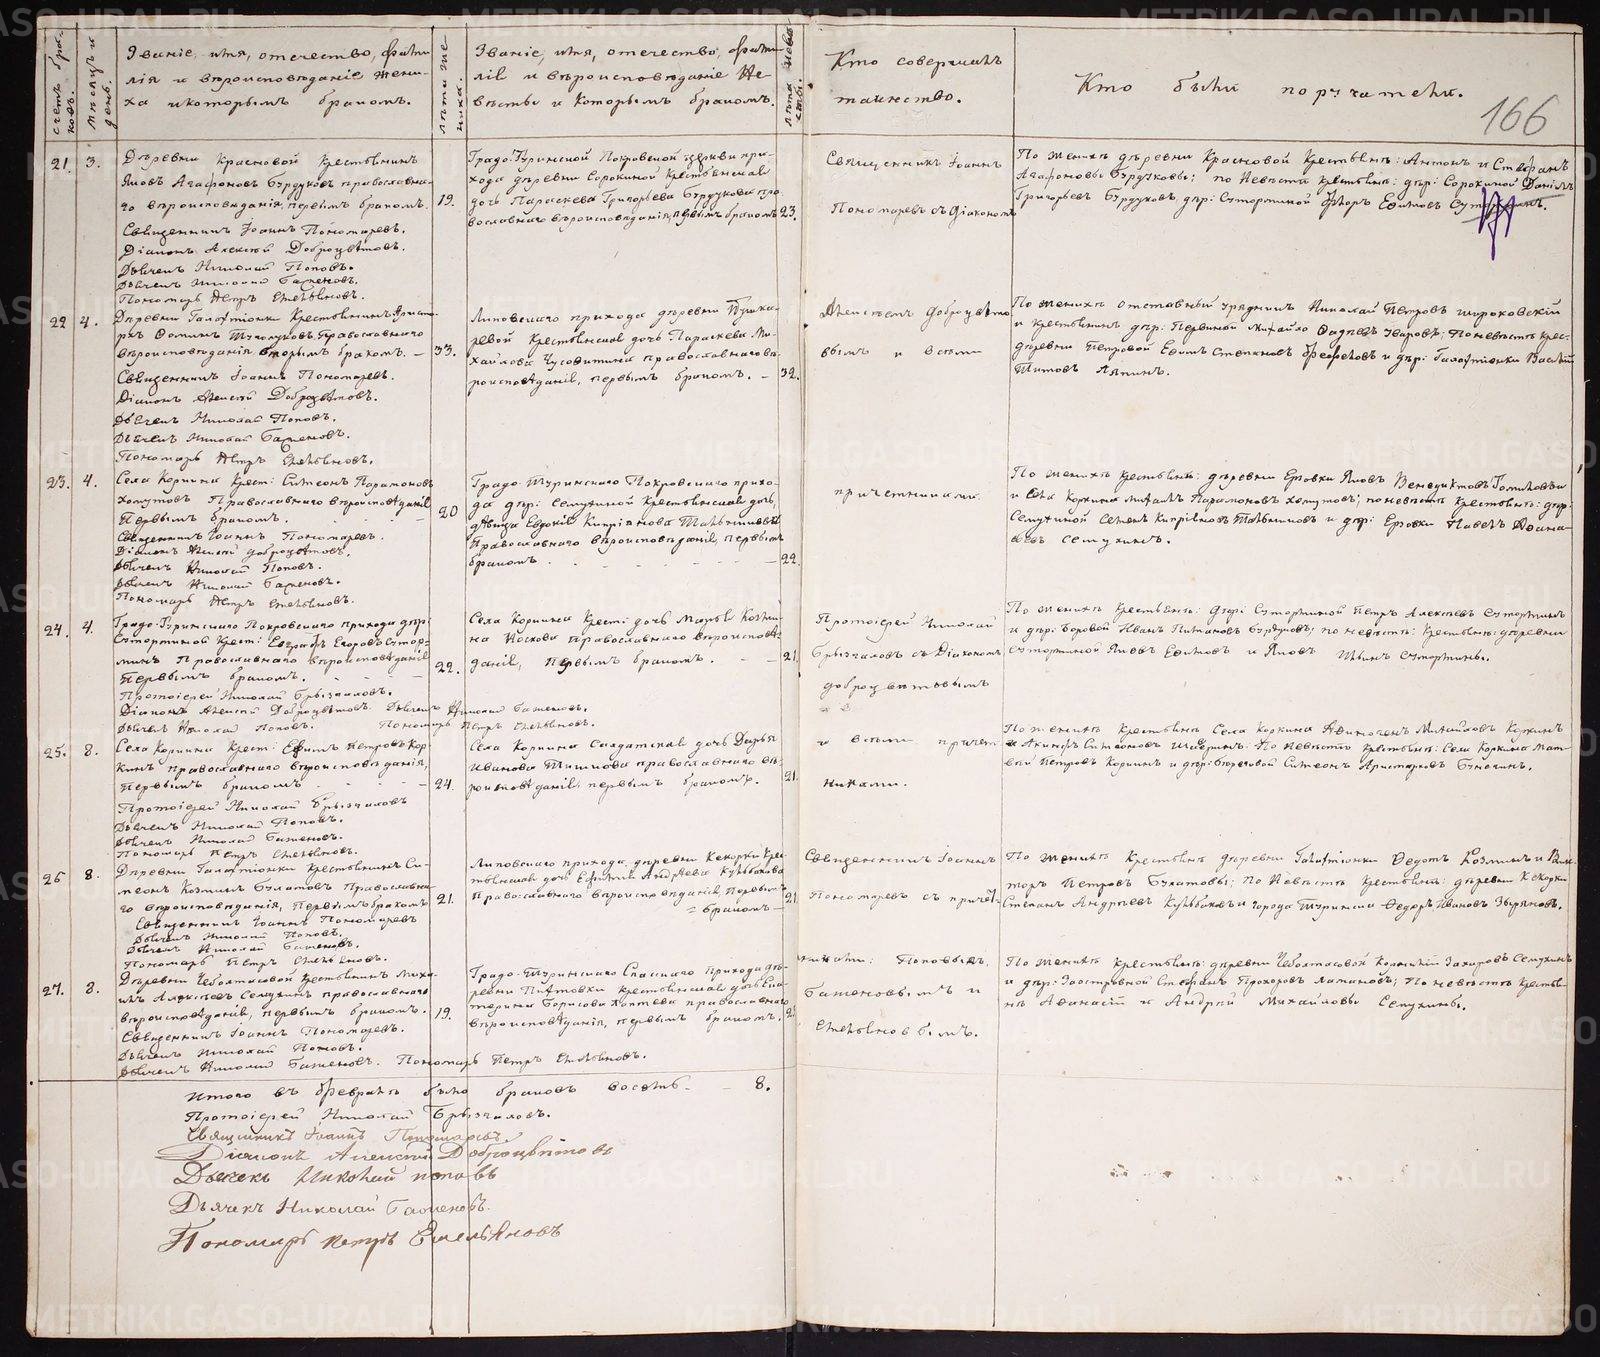 счетъ бра-
ковъ.
мѣсяцъ и
день.
Званіе, имя, отечество, фами
лія и вѣроисповѣданіе жени-
ха и которымъ бракомъ.
лѣта же
ниха.
Званіе, имя, отечество, фами
лія и вѣроисповѣданіе не
вѣсты и которымъ бракомъ.
лѣта невѣ
сты.
Кто совершалъ
таинство.
Кто были поручатели.
166
21. 3.
Деревни Красновой крестьянинъ
Яковъ Агафоновъ Бурдуковъ православна-
го вѣроисповѣданія, первымъ бракомъ.
19.
Священникъ Іоаннъ Пономаревъ.
Діаконъ Алексій Доброцвѣтовъ.
Дьячекъ Николай Поповъ.
Дьячекъ Николай Баженовъ.
Пономарь Петръ Емельяновъ.
Градо-Туринской Покровской церкви при-
хода деревни Сорокиной крестьянская
дочь Параскева Григорьева Бурдукова пра
вославнаго вѣроисповѣданія, первымъ бракомъ
23.
Священникъ Іоаннъ
Пономаревъ съ Діакономъ
По женихѣ деревни Красновой крестьян: Антонъ и Стефанъ
Агафоновы Бурдуковы; по невѣстѣ крестьян: дер: Сорокиной Данілъ
Григорьевъ Бурдуковъ, дер: Суторминой Федоръ Ефимовъ Суторминъ.
22 4.
вѣроисповѣданія вторымъ бракомъ.
33.
Священникъ Іоаннъ Пономаревъ.
Діаконъ Алексій Доброцвѣтовъ.
Дьячекъ Николай Поповъ.
Дьячекъ Николай Баженовъ.
Пономарь Петръ Емельяновъ.
Липовскаго прихода деревни
ревой крестьянская дочь Параскева Ми-
хайлова Чусовитина православнаго вѣ-
роисповѣданія, первымъ бракомъ.
32.
Алексѣемъ Доброцвѣто
вымъ и всѣми
По женихѣ отставный урядникъ Николай Петровъ Широковскій
и крестьянинъ дер: Первиной Михайло Фадѣевъ Уваровъ, по невѣстѣ крес-
деревни Петровой Ефимъ Степановъ и дер: Галактіонки Василій
Титовъ Ляпинъ.
23. 4.
Села Коркина Крест: Симеонъ Парамоновъ
Хомутовъ Православнаго вѣроисповѣданія
Первымъ бракомъ.
20
Священникъ Іоаннъ Пономаревъ.
Діаконъ Алексій Доброцвѣтовъ.
Дьячекъ Николай Поповъ.
Дьячекъ Николай Баженовъ.
Пономарь Петръ Емельяновъ.
Градо-Туринскаго Покровскаго прихо-
да дер: Семухиной Крестьянская дочь,
дѣвица Евдокія Кипріянова
Православнаго вѣроисповѣданія, первымъ
бракомъ.
22.
причетниками
По женихѣ крестьян: деревни Ерзовки Яковъ Венедиктовъ
и села Коркина Михаилъ Парамоновъ Хомутовъ; по невѣстѣ крестьян: дер:
Семухиной Семенъ Кипріяновъ и дер: Ерзовки Павелъ Афана-
сьевъ Семухинъ.
24. 4.
Градо-Туринскаго Покровскаго прихода дер:
Суторминой Крест: Евграфъ Егоровъ Сутор-
минъ Православнаго вѣроисповѣданія
первымъ бракомъ.
22.
Протоіерей Николай Брызгаловъ.
Діаконъ Алексій Доброцвѣтовъ. Дьячекъ Николай Баженовъ.
Дьячекъ Николай Поповъ. Пономарь Петръ Емельяновъ.
Села Коркина Крест: дочь Марья Козми-
на Носкова православнаго вѣроисповѣ-
данія, первымъ бракомъ.
21.
Протоіерей Николай
Брызгаловъ съ Діакономъ
Доброцвѣтовымъ
По женихѣ крестьяне: дер: Суторминой Петръ Алексѣевъ Суторминъ
и дер: Боровой Иванъ Бурдуковъ; по невѣстѣ: крестьян: деревни
Суторминой Яковъ Ефимовъ и Яковъ Ильинъ Сутормины.
25. 8.
Села Коркина Крест: Ефимъ Петровъ Кор
кинъ православнаго вѣроисповѣданія,
первымъ бракомъ
24.
Протоіерей Николай Брызгаловъ
Дьячекъ Николай Поповъ.
Дьячекъ Николай Баженовъ.
Пономарь Петръ Емельяновъ.
Села Коркина Солдатская дочь Дарья
Иванова Тишкова православнаго вѣ-
роисповѣданія, первымъ бракомъ.
21.
и всѣми причет
никами.
По женихѣ крестьян: Села Коркина Михайловъ Коркинъ
и Акинфъ Симеоновъ По невѣстѣ крестьян: Села Коркина Мат-
вѣй Петровъ Коркинъ и дер: Симеонъ Аристарховъ
26 8.
Деревни Галактіонки крестьянинъ Си-
меонъ Козминъ Булатовъ Православна-
го вѣроисповѣданія, Первымъ бракомъ
21.
Священникъ Іоаннъ Пономаревъ
Дьячекъ Николай Поповъ.
Дьячекъ Николай Баженовъ.
Пономарь Петръ Емельяновъ.
Липовскаго прихода, деревни Кекорки Крес-
тьянская дочь Андреева Кульбакова
Православнаго вѣроисповѣданія, Первымъ
бракомъ
21.
Священникъ Іоаннъ
Пономаревъ съ причет-
По женихѣ крестьян: деревни Галактіонки Федотъ Козминъ и Вик-
торъ Петровъ Булатовы; по невѣстѣ крестьян: деревни Кекорки
Степанъ Андреевъ Кульбаковъ и города Туринска Федоръ Ивановъ Зыряновъ.
27. 8.
Деревни Чеболтасовой крестьянинъ Миха-
илъ Алексѣевъ Семухинъ православнаго
вѣроисповѣданія, первымъ бракомъ.
19.
Священникъ Іоаннъ Пономаревъ.
Дьячекъ Николай Поповъ.
Дьячекъ Николай Баженовъ. Пономарь Петръ Емельяновъ.
Градо-Туринскаго Спасскаго прихода де-
ревни крестьянская дочь Ека-
терина Борисова православнаго
вѣроисповѣданія, первымъ бракомъ.
никами: Поповымъ,
Баженовымъ и
Емельяновымъ.
По женихѣ крестьян: деревни Чеболтасовой Захаровъ Семухинъ
и дер: Заостровной Стефанъ Прохоровъ; По невѣстѣ крестья-
не Афанасій и Андрей Михайловы Семухины.
Итого въ Февралѣ было браковъ восемь. 8.
Протоіерей Николай Брызгаловъ.
Священникъ Іоаннъ Пономаревъ.
Діаконъ Алексій Доброцвѣтовъ
Дьячекъ Николай Поповъ
Дьячекъ Николай Баженовъ.
Пономарь Петръ Емельяновъ
METRIKI.GASO-URAL.RU